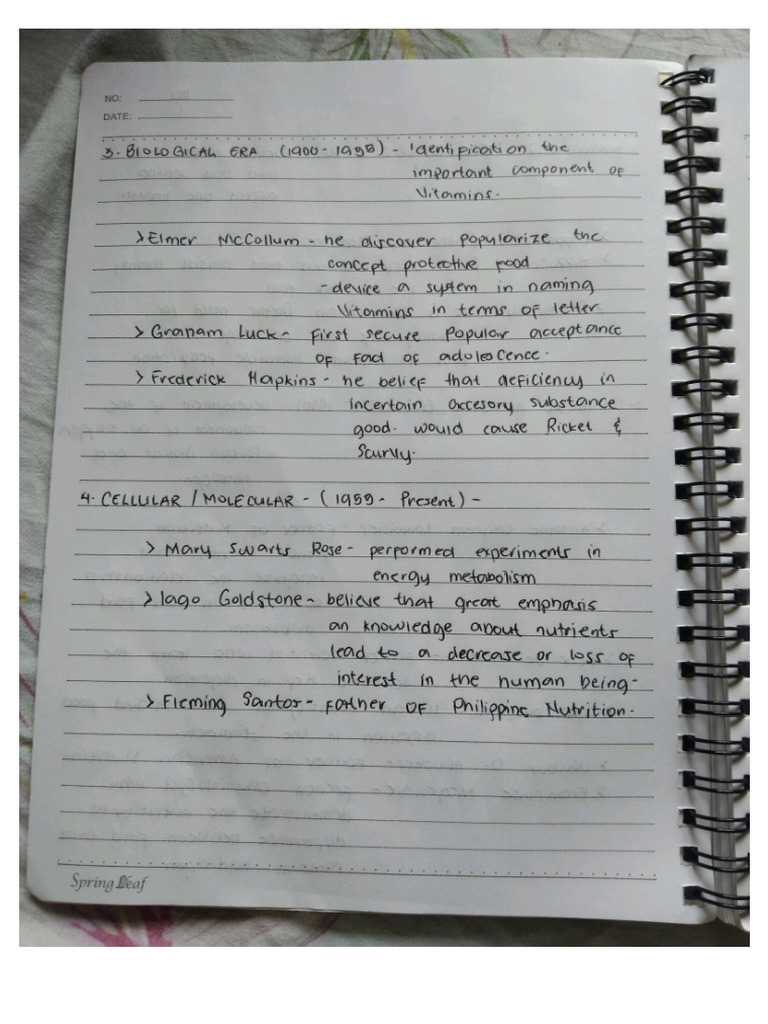 NO:
DATE:
3. BIOLOGICAL ERA (1900 - 1955) - Identification the
important component of
Vitamins.
> Elmer McCollum - he discover popularize the
concept protective food
- device a system in naming
Vitamins in terms of letter
> Graham Luck - First secure popular acceptance
of fad of adoleocence.
> Frederick Hapkins - he belief that deficiency in
incertain accesory substance
good. would cause Ricket &
Scurvy.
4. CELLULAR / MOLECULAR - (1955 - Present) -
> Mary Swarts Rose - performed experiments in
energy metabolism
> Iago Goldstone - believe that great emphasis
an knowledge about nutrients
lead to a decrease or loss of
interest in the human being-
> Fleming Santos - Father OF Philippine Nutrition.
Spring Leaf